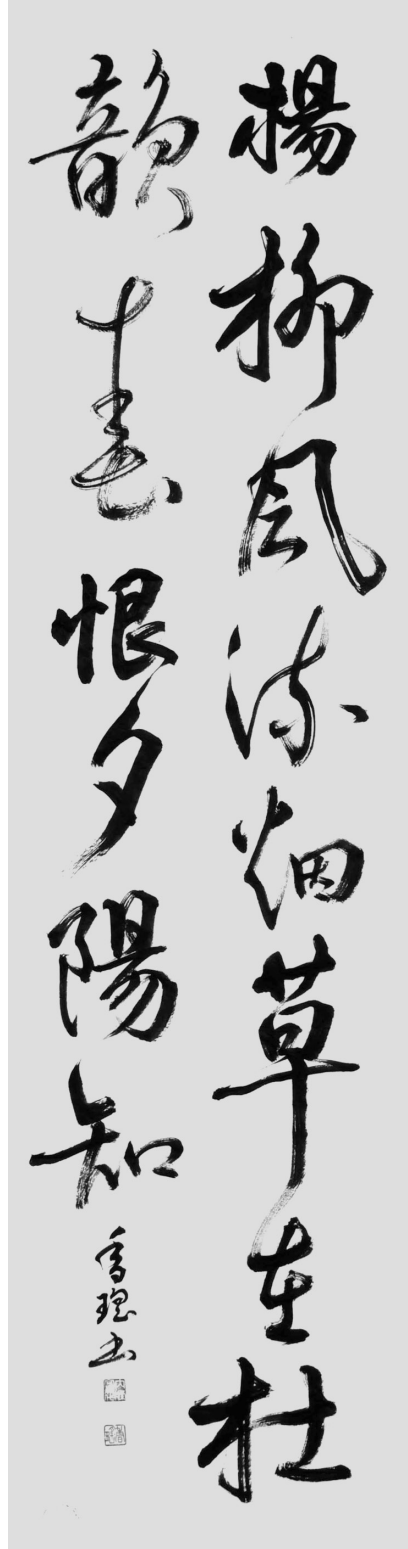 楊柳風流烟草在杜
韻春恨夕陽知
書